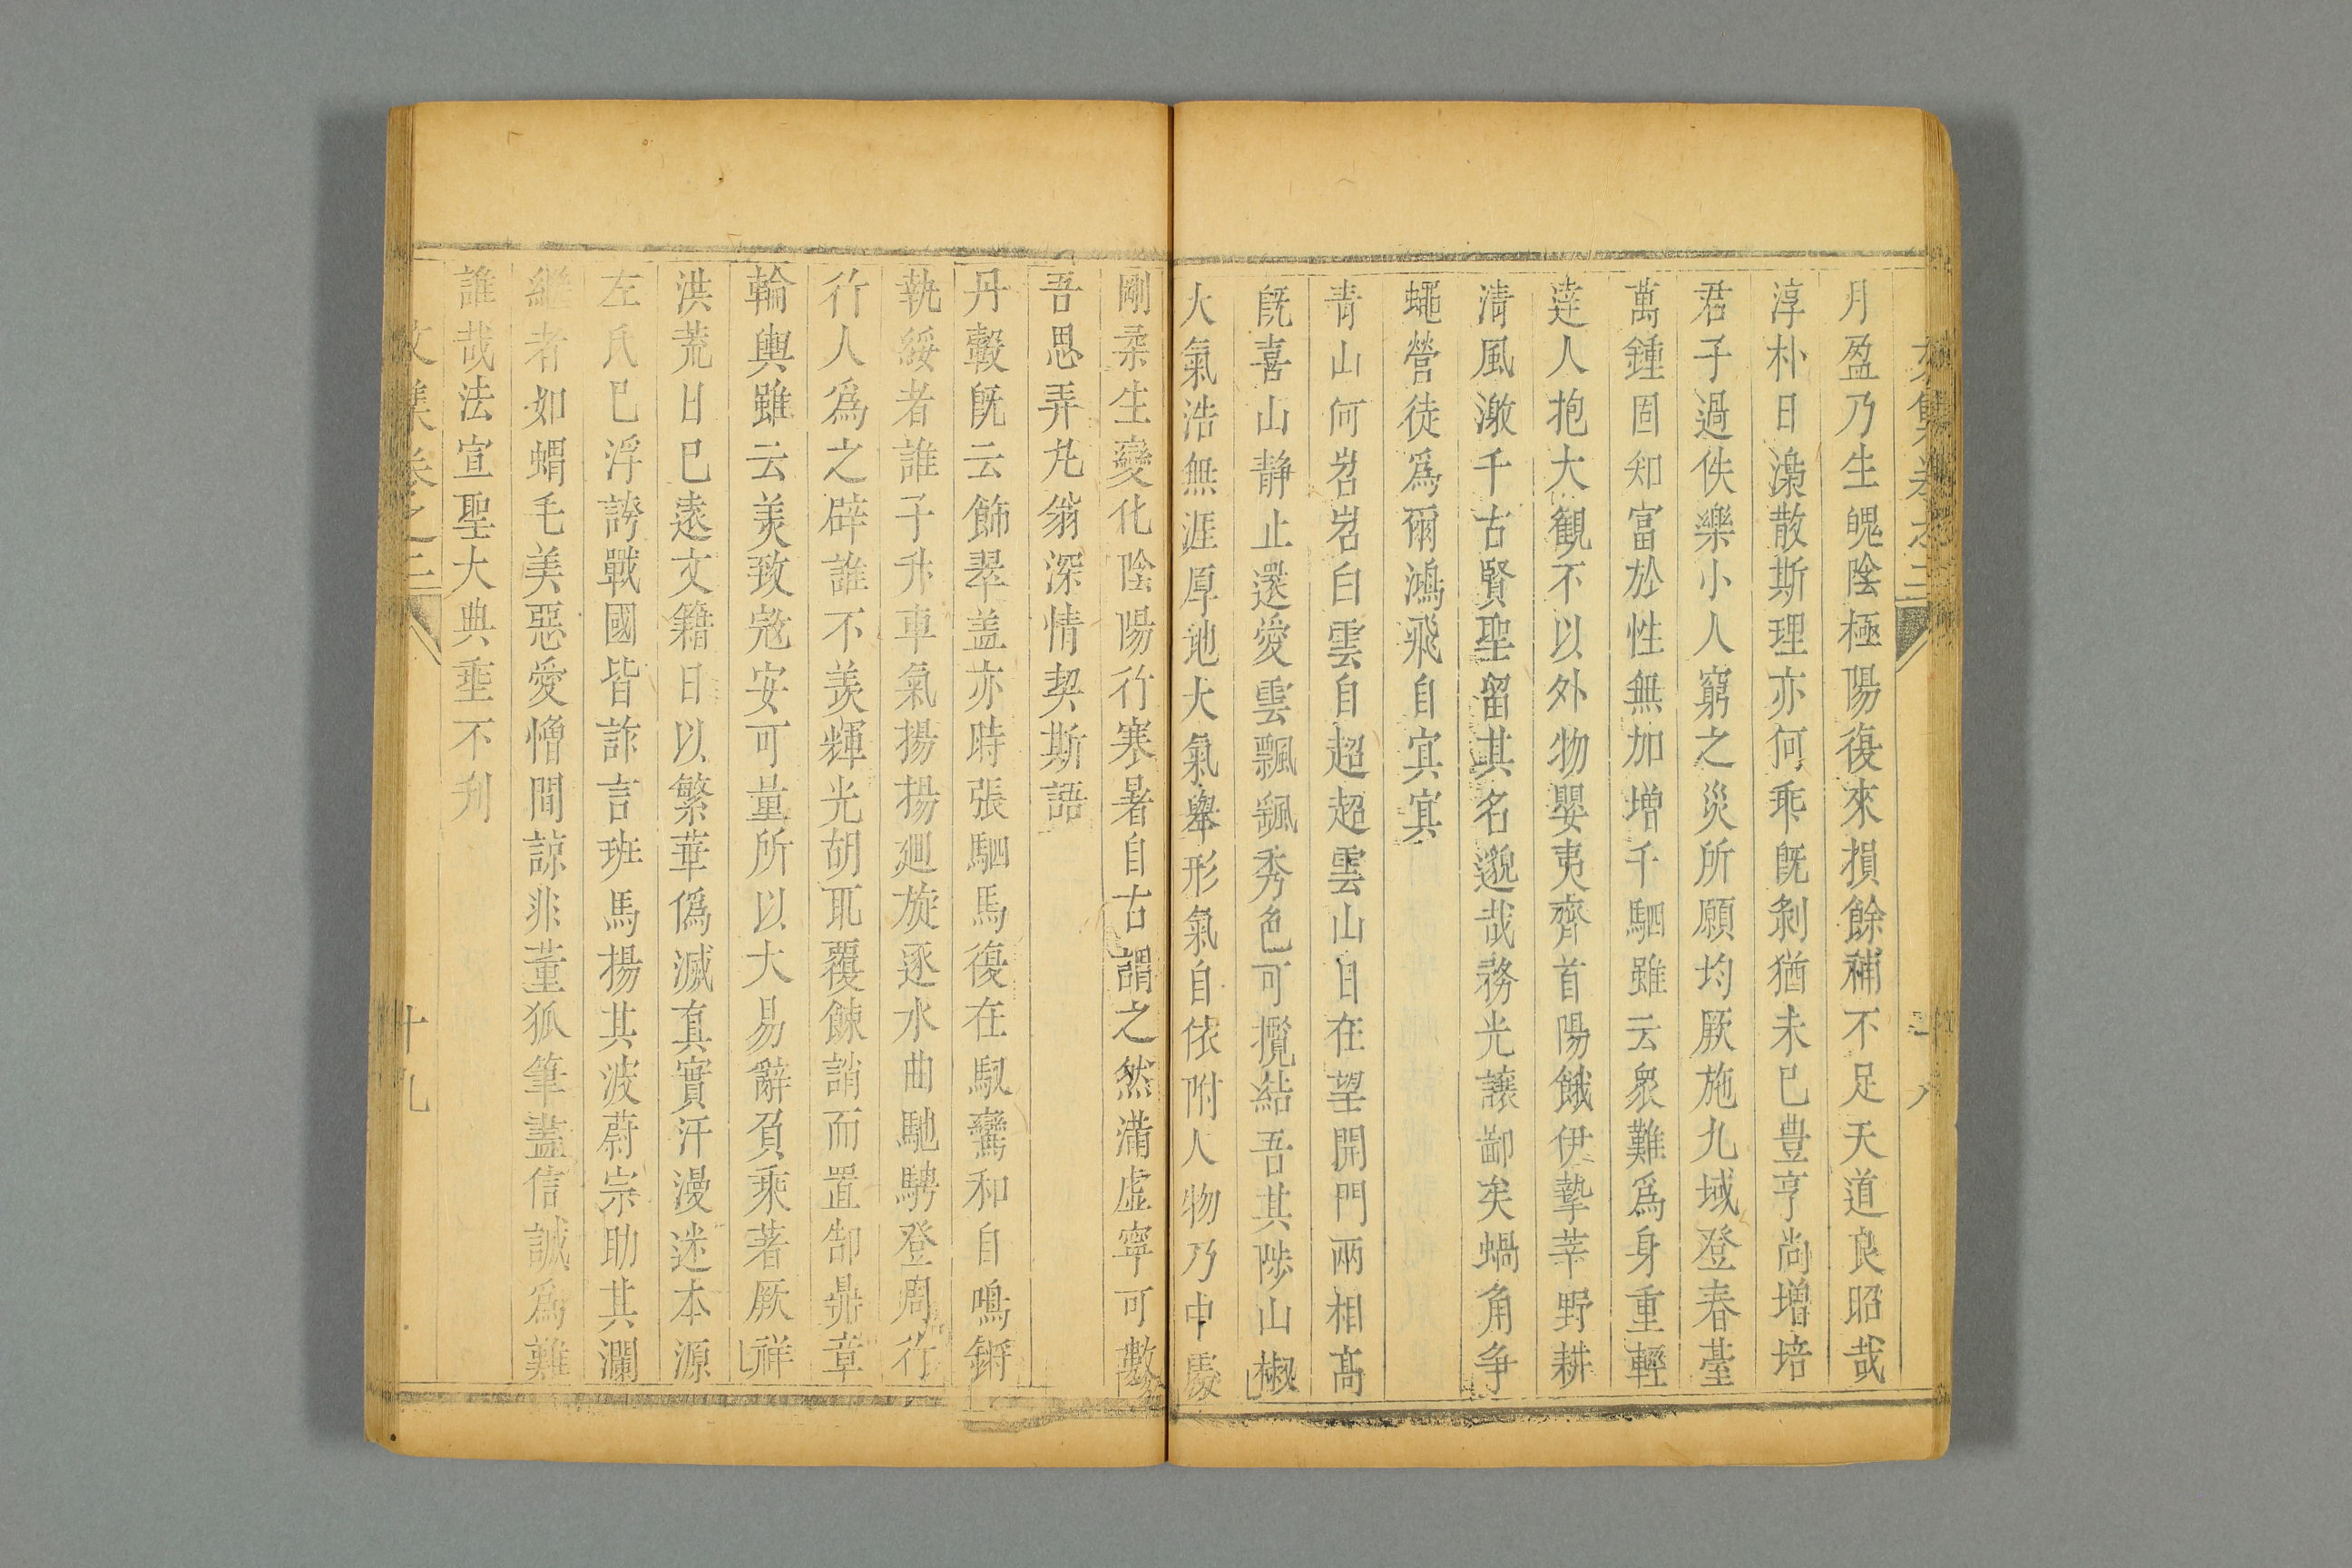 文集卷之二 十八
月盈乃生魄陰極陽復來損餘補不足天道良昭哉
淳朴日澆散斯理亦何乖旣剝猶未已豊亨尚增培
君子過佚樂小人窮之災所願均厥施九域登春臺
萬鍾固知富於性無加增千駟雖云衆難爲身重輕
達人抱大觀不以外物嬰夷齊首陽餓伊摯莘野耕
淸風激千古賢聖留其名邈哉務光讓鄙矣蝸角爭
蠅營徒爲爾鴻飛自冥冥
靑山何岧岧白雲自超超雲山日在望開門兩相高
旣喜山靜止還愛雲飄飄秀色可攬結吾其陟山椒
大氣浩無涯厚地大氣舉形氣自依附人物乃中處
剛柔生變化陰陽行寒暑自古謂之然滿虛寧可數
吾思弄丸翁深情契斯語
丹轂旣云飾翠盖亦時張駟馬復在馭鸞和自鳴鏘
執綏者誰子升車氣揚揚廻旋逐水曲馳騁登周行
行人爲之辟誰不羨輝光胡耴覆餗誚而置郜鼎章
輪輿雖云美致寇安可量所以大易辭負乘著厥祥
洪荒日已遠文籍日以繁華僞滅真實汗漫迷本源
左氏已浮誇戰國皆詐言班馬揚其波蔚宗助其瀾
繼者如蝟毛美惡愛憎間諒非董狐筆盡信誠爲難
誰哉法宣聖大典垂不刋
文集卷之二 十九